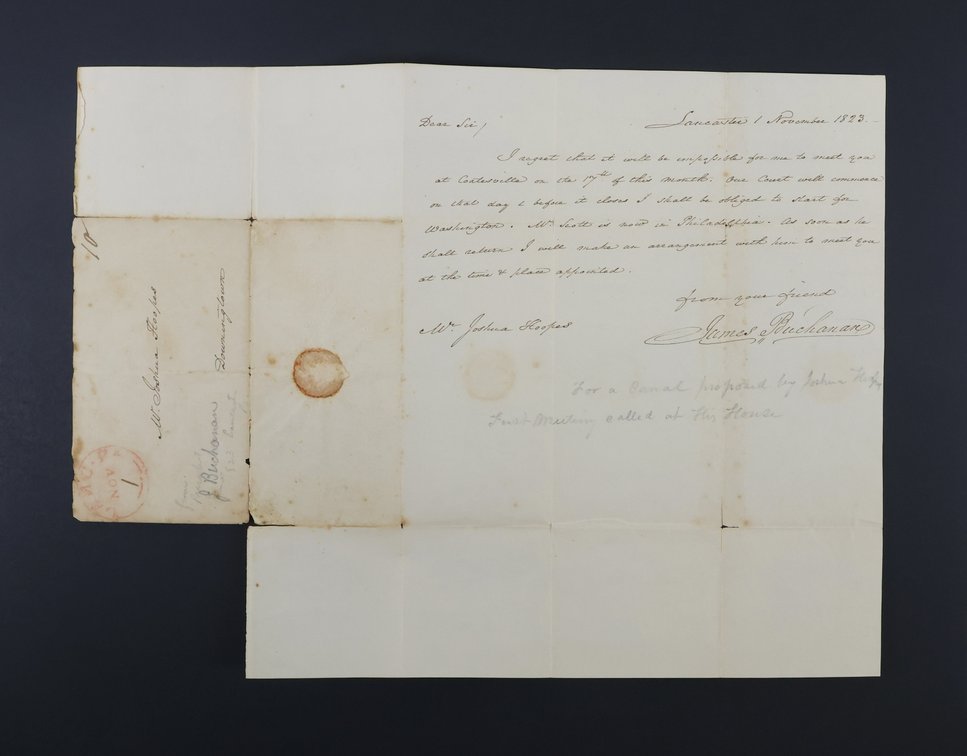 Lancaster 1 November 1823.
Dear Sir,
I regret that it will be impossible for me to meet you
at Coatesville on the 17th of this month. Our Court will commence
on that day & before it closes I shall be obliged to start for
Washington. Mr. Scott is now in Philadelphia. As soon as he
shall return I will make an arrangement with him to meet you
at the time & place appointed.
from your friend
James Buchanan
Mr. Joshua Hoopes
For a Canal proposed by Joshua
First Meeting called at His House
10
Mr. Joshua Hoopes
Downingtown
J Buchanan
NOV
1